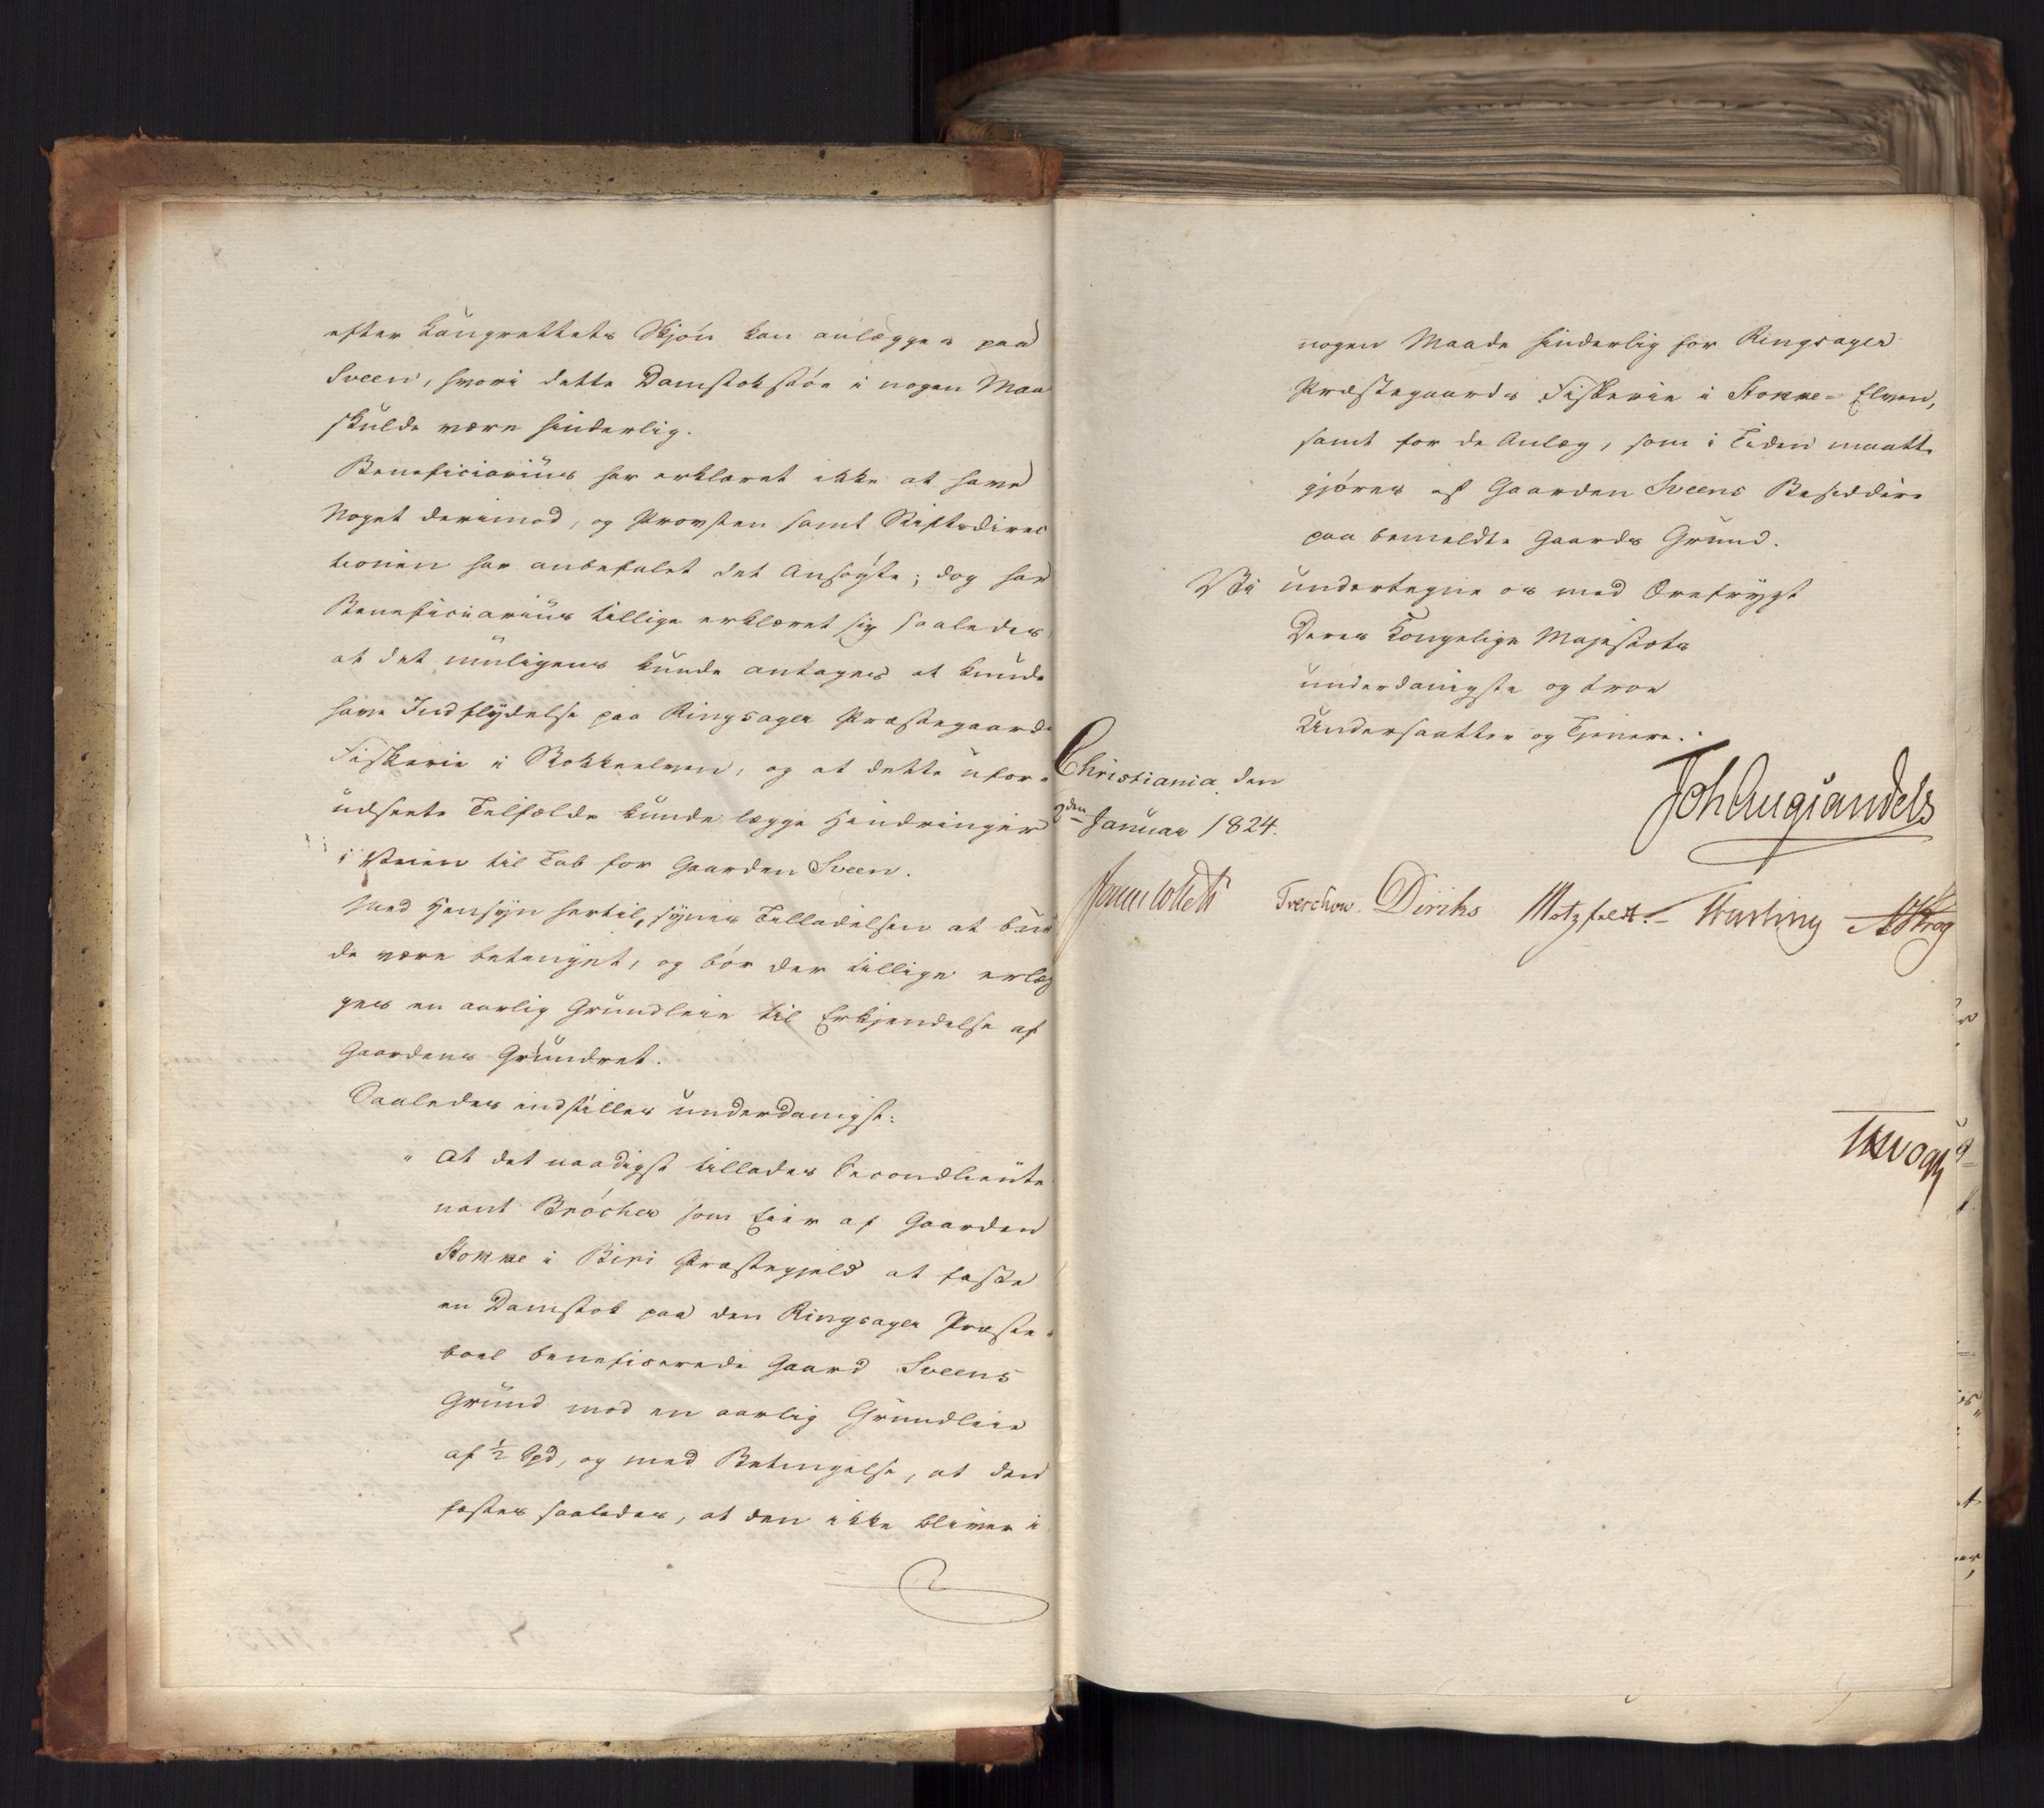 efter Laugrettets Skjøn kan anlægges paa
Sveen, hvori dette Damstokstøe i nogen Maa
skulde være hinderlig.
Beneficiarius har erklæret ikke at have
Noget derimod, og Provsten samt Stiftsdirec
tionen har anbefalet det Ansøgte; dog har
Beneficiarius tillige erklæret sig saaledes
at det muligens kunde antages at kunde
have Indflydelse paa Ringsager Præstegaards
Fiskerie i Stokkeelven, og at dette ufor-
udseete Tilfælde kunde lægge Hindringer
i Veien til Tab for Gaarden Sveen.
Med Hensyn hertil, synes Tilladelsen at bur
de være betinget, og bør der tillige erlæg
ges en aarlig Grundleie til Erkjendelse af
Gaardens Grundret.
Saaledes indstilles underdanigst:
" At det naadigst tillades Secondlieute
nant Bröcher som Eier af Gaarden
Stokke i Biri Præstegjeld at fæste
en Damstok paa den Ringsager Præste-
boel beneficerede Gaard Sveens
Grund mod en aarlig Grundleie
af ½ Spd, og med Betingelse, at den
fæstes saaledes, at den ikke bliver i
nogen Maade hinderlig for Ringsager
Præstegaards Fiskerie i Stokke-Elven,
samt for de Anlæg, som i Tiden maatte
gjøres af Gaarden Sveens Besiddere
paa bemeldte Gaards Grund.
Vi undertegne os med Ærefrygt
Deres Kongelige Majestæts
underdanigste og troe
Undersaatter og Tjenere.
Christiania den
2den Januar 1824.
Joh Aug Sandels
Jonas Collett Treschow. Diriks Motzfeldt. Fasting Krog
Vogt